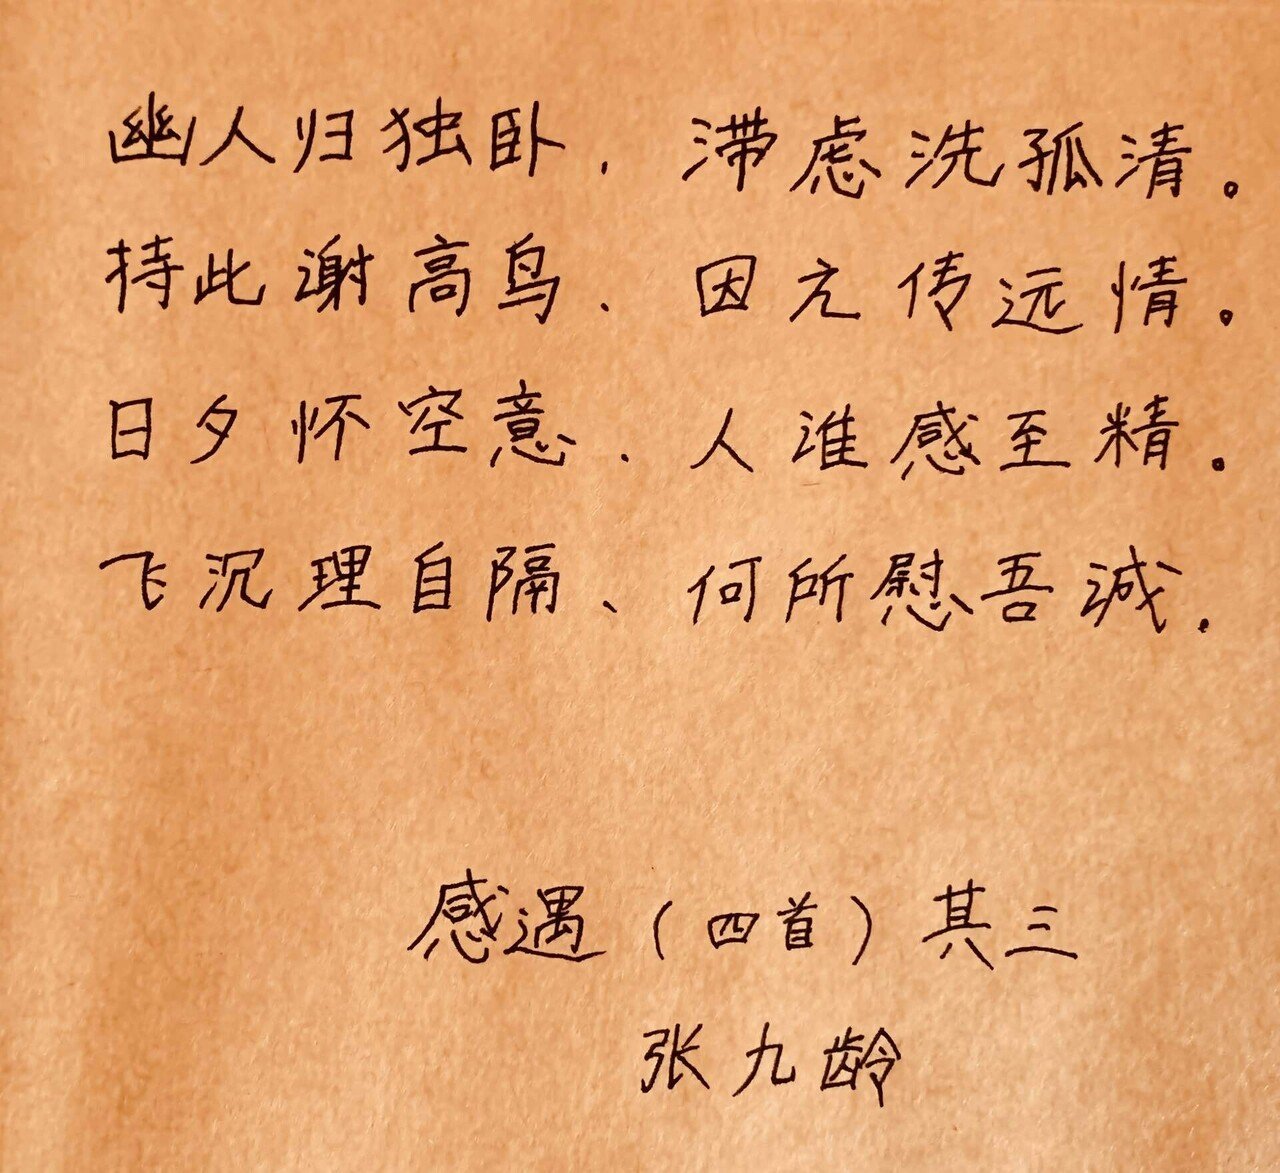 幽人归独卧，滞虑洗孤清。
持此谢高鸟，因之传远情。
日夕怀空意，人谁感至精。
飞沉理自隔、何所慰吾诚.
感遇（四首）其三
张九龄